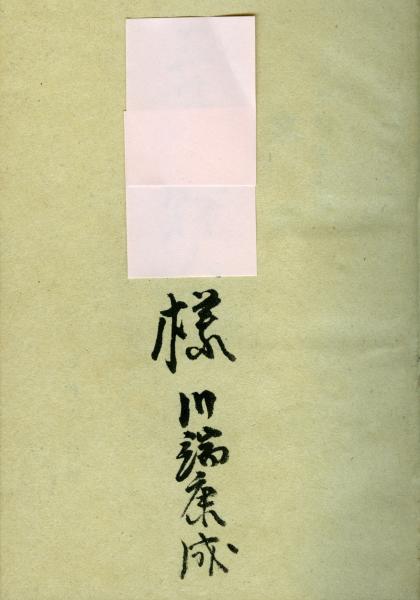 様
川端康成